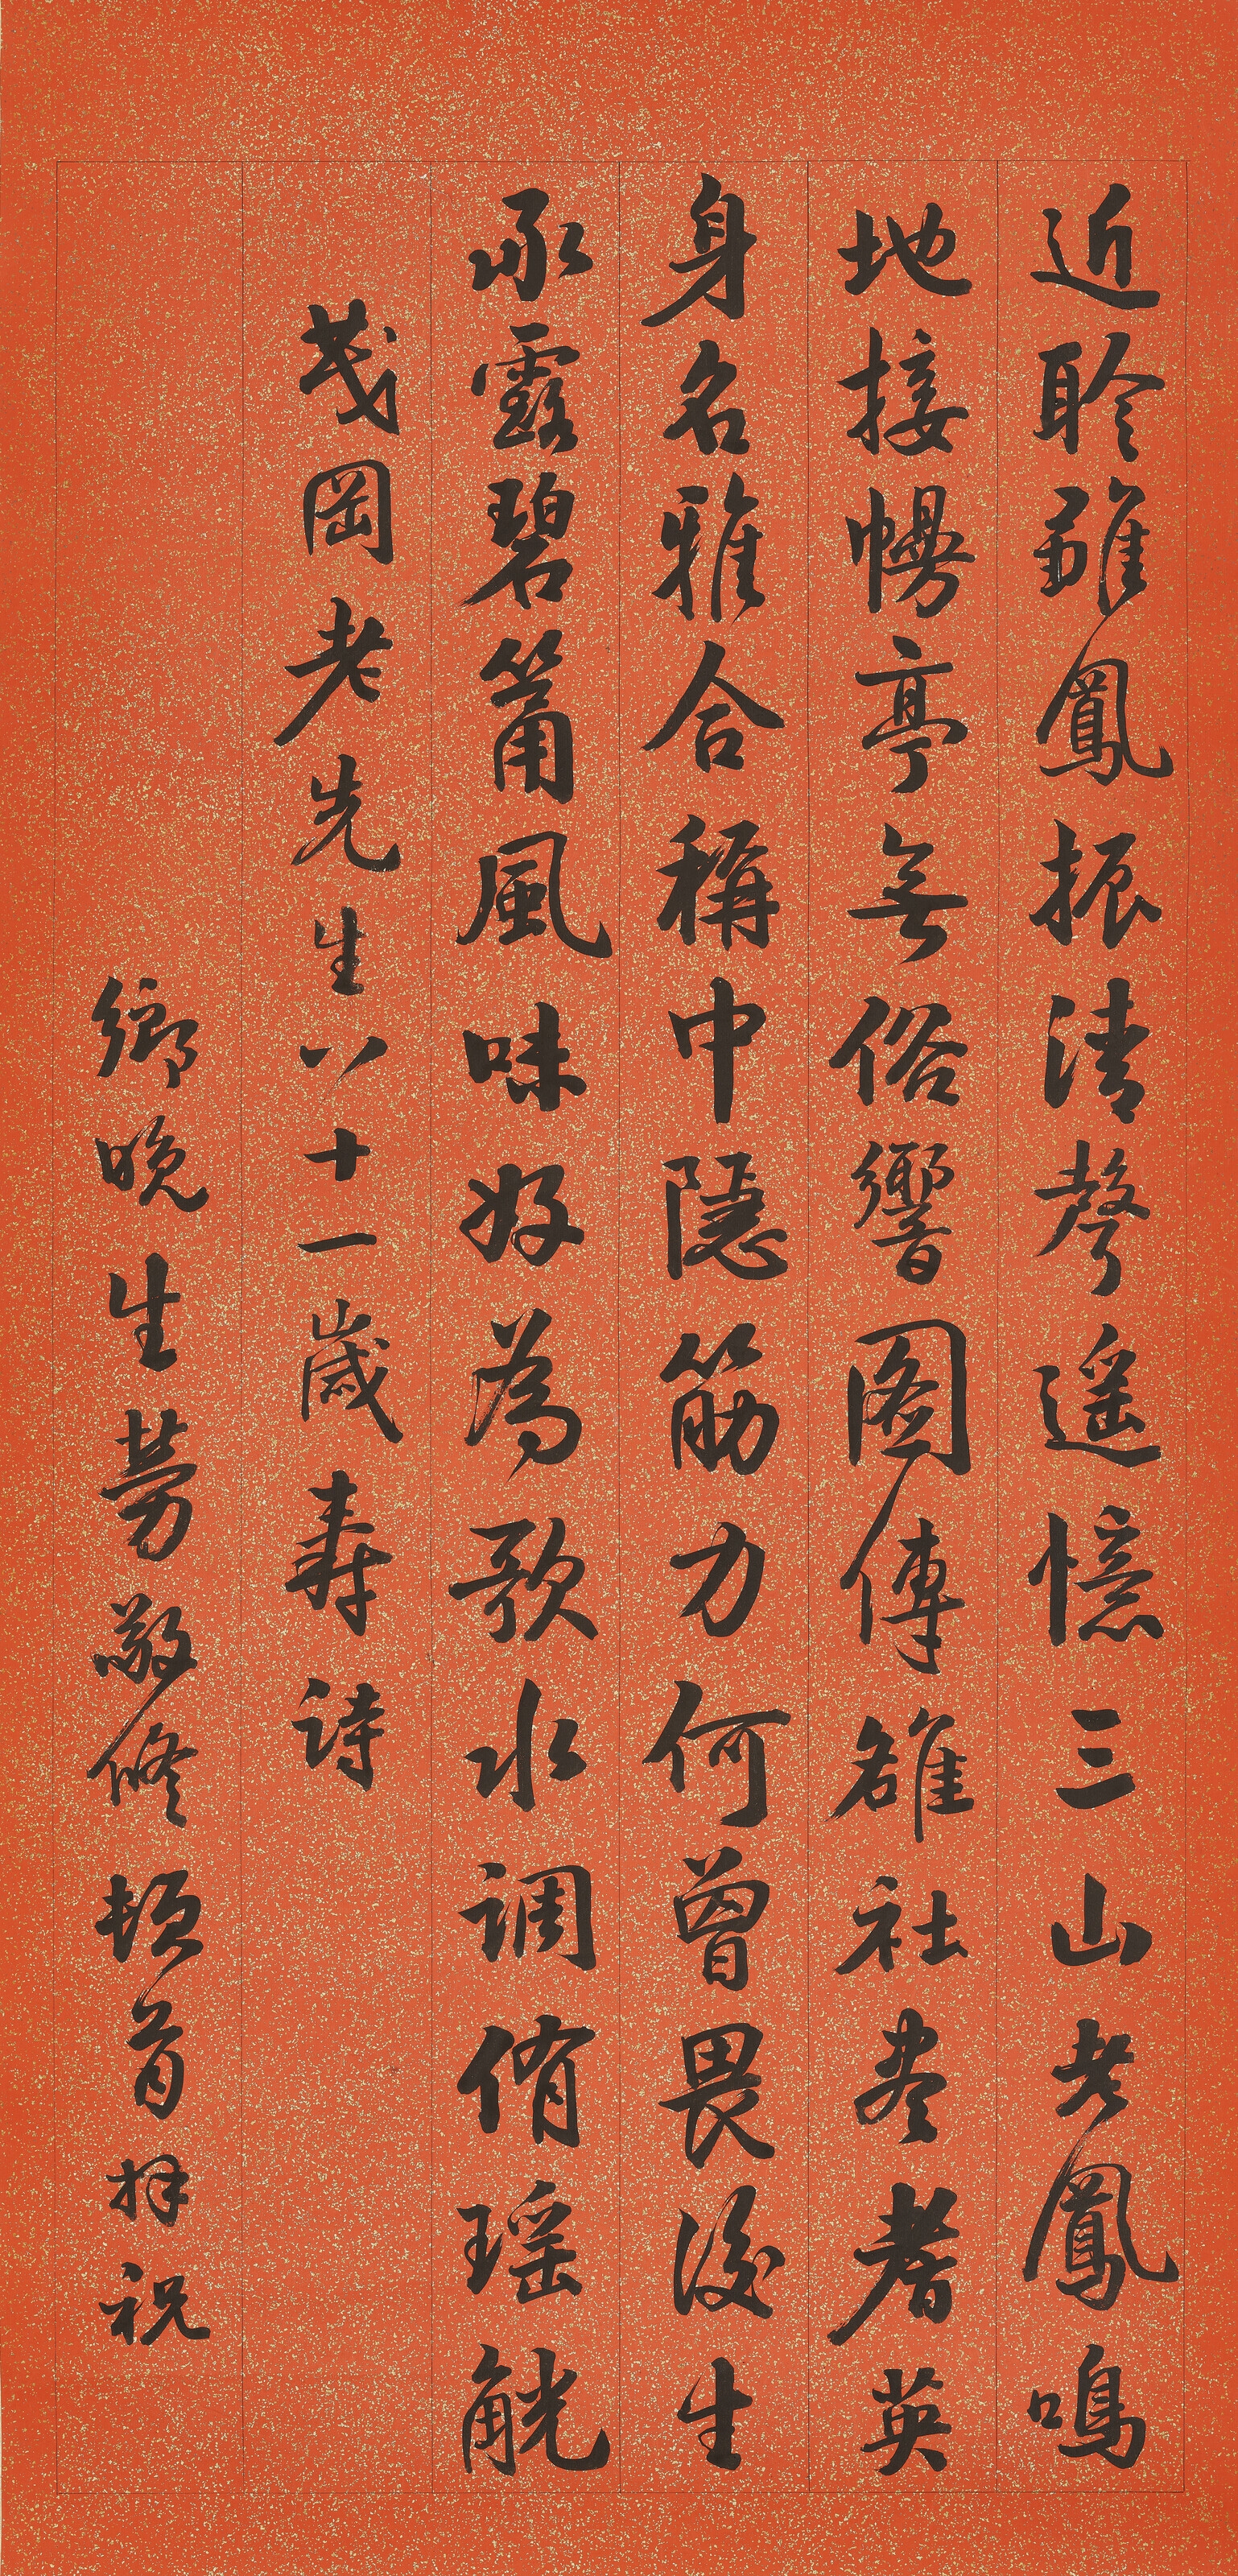 近聆雛鳳振清聲遥憶三山老鳳鳴
地接幔亭無俗響圖傳雒社盡耆英
身名雅合稱中隱筋力何曾畏後生
承露碧筩風味好為歌水调侑瑶觥
茂岡老先生八十一歲壽詩
鄉晚生勞敬修頓首拜祝